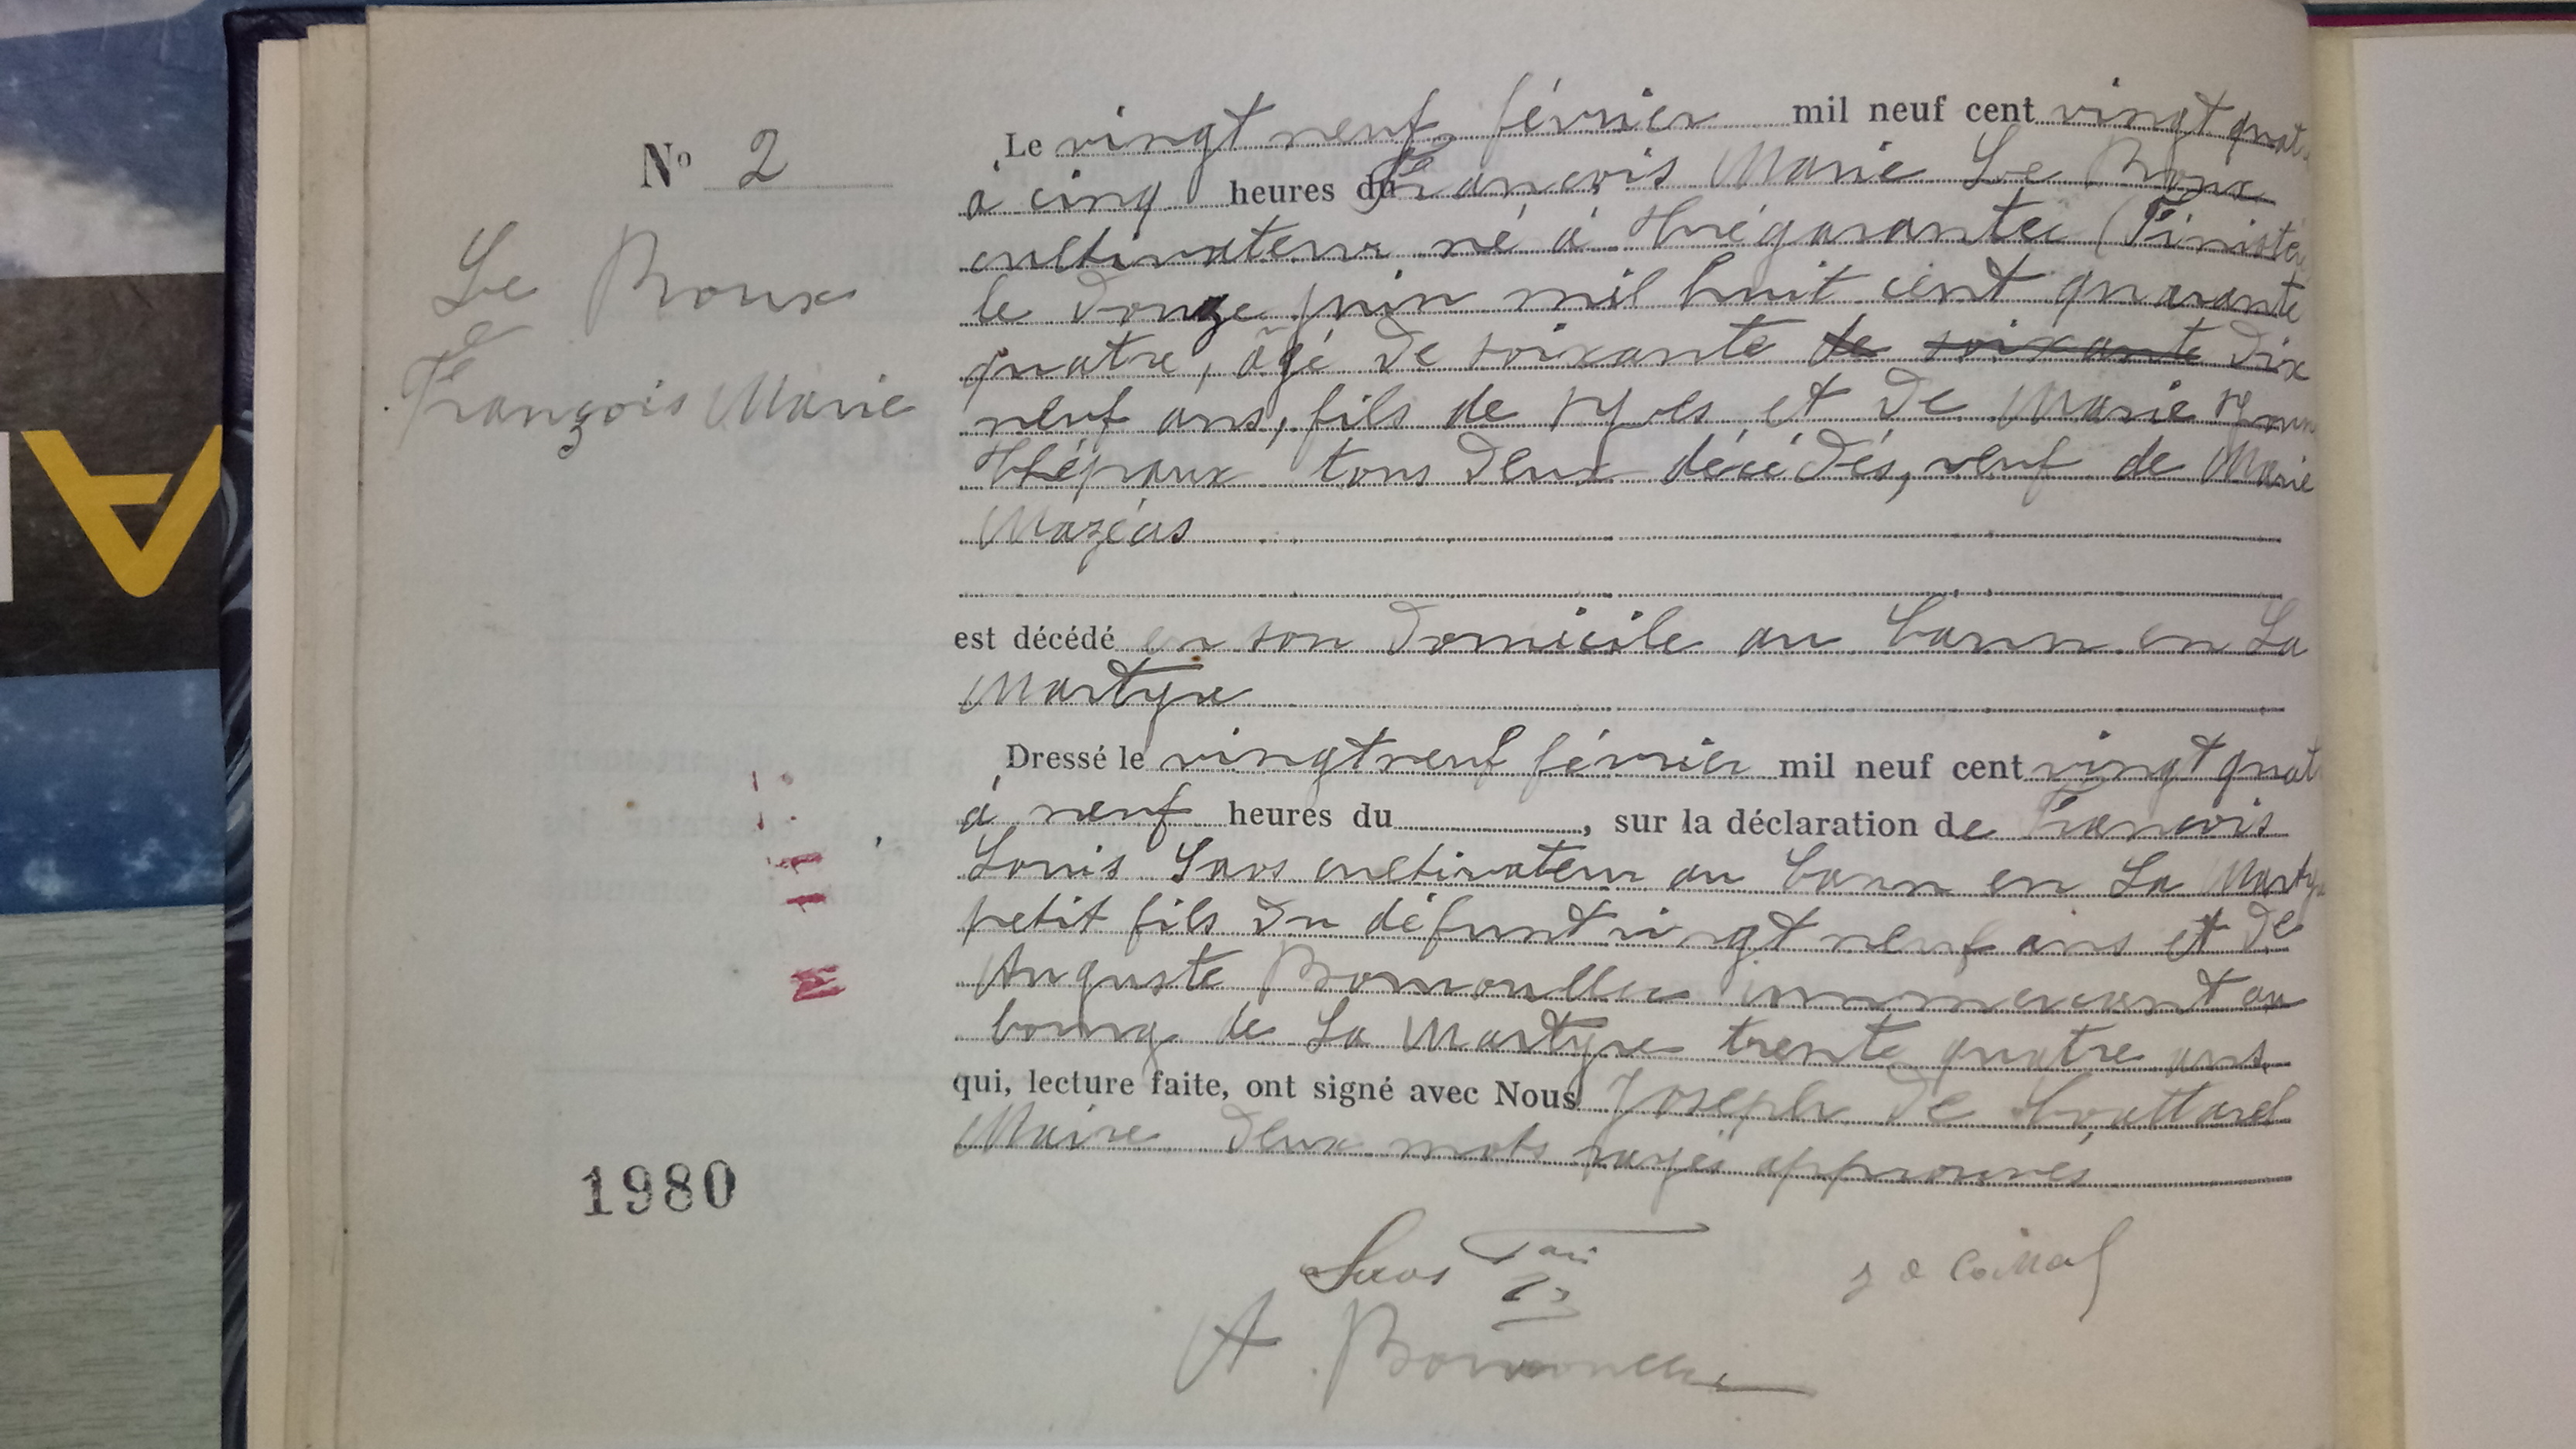 Nº 2
Le Roux
François Marie
Le vingt neuf février mil neuf cent vingt quat
à cinq heures du François Marie Le Roux
cultivateur né à Trégarantec (Finistè
le douze juin mil huit cent quarante
quatre, âgé de soixante de soixante dix
neuf ans, fils de Yves et de Marie
Thépaux tous deux décédés, veuf de Marie
Mazéas
est décédé en son domicile au bann en La
Martyre
Dressé le vingt neuf février mil neuf cent vingt quat
à neuf heures du , sur la déclaration de François
Louis Saos cultivateur au bann en La Martyr
petit fils du défunt vingt neuf ans et de
Auguste commercant au
bourg de La Martyre trente quatre ans
qui, lecture faite, ont signé avec Nous Joseph de
Maire deux mots rayés approuvés
1980
Saos
A